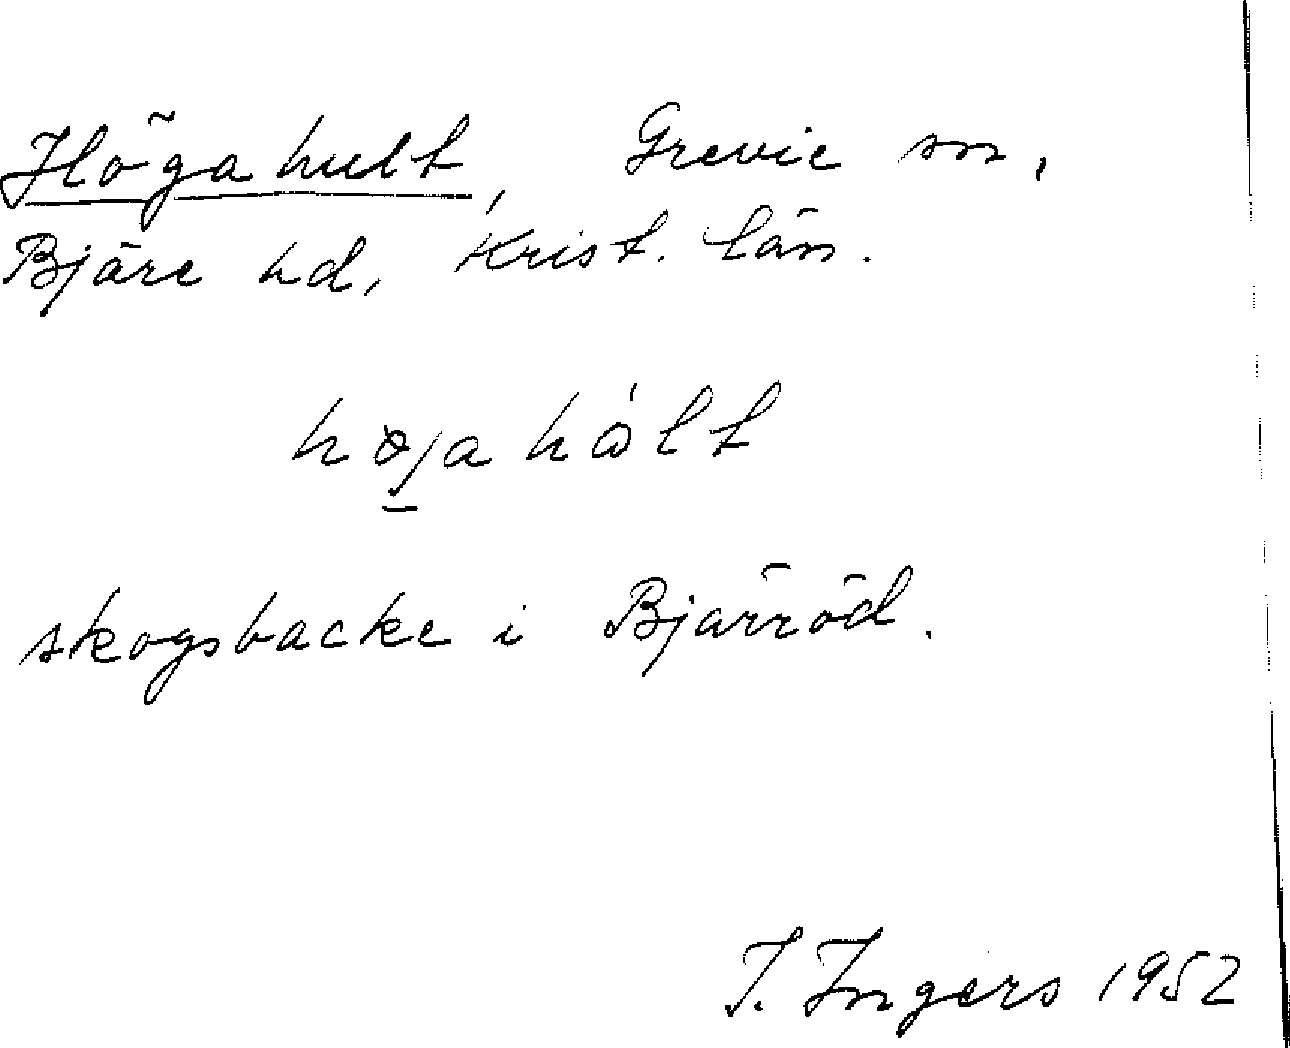 Högahult, Grevie sn,
Bjäre hd, Krist. län.
højahål̀t
skogsbacke i Bjärröd.
I. Ingers 1952